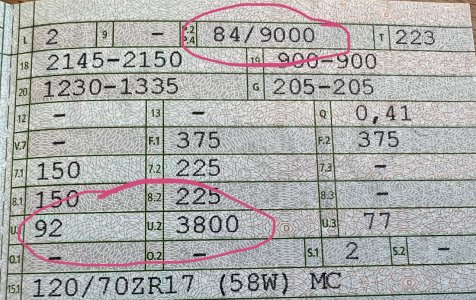 L 2 9 - P.2 P.4 84/9000 T 223
18 2145-2150 19 900-900
20 1230-1335 G 205-205
12 - 13 - Q 0,41
V.7 - F.1 375 F.2 375
7.1 150 7.2 225 7.3 -
8.1 150 8.2 225 8.3 -
U.1 92 U.2 3800 U.3 77
O.1 - O.2 - S.1 2 S.2 -
15.1 120/70ZR17 (58W) MC